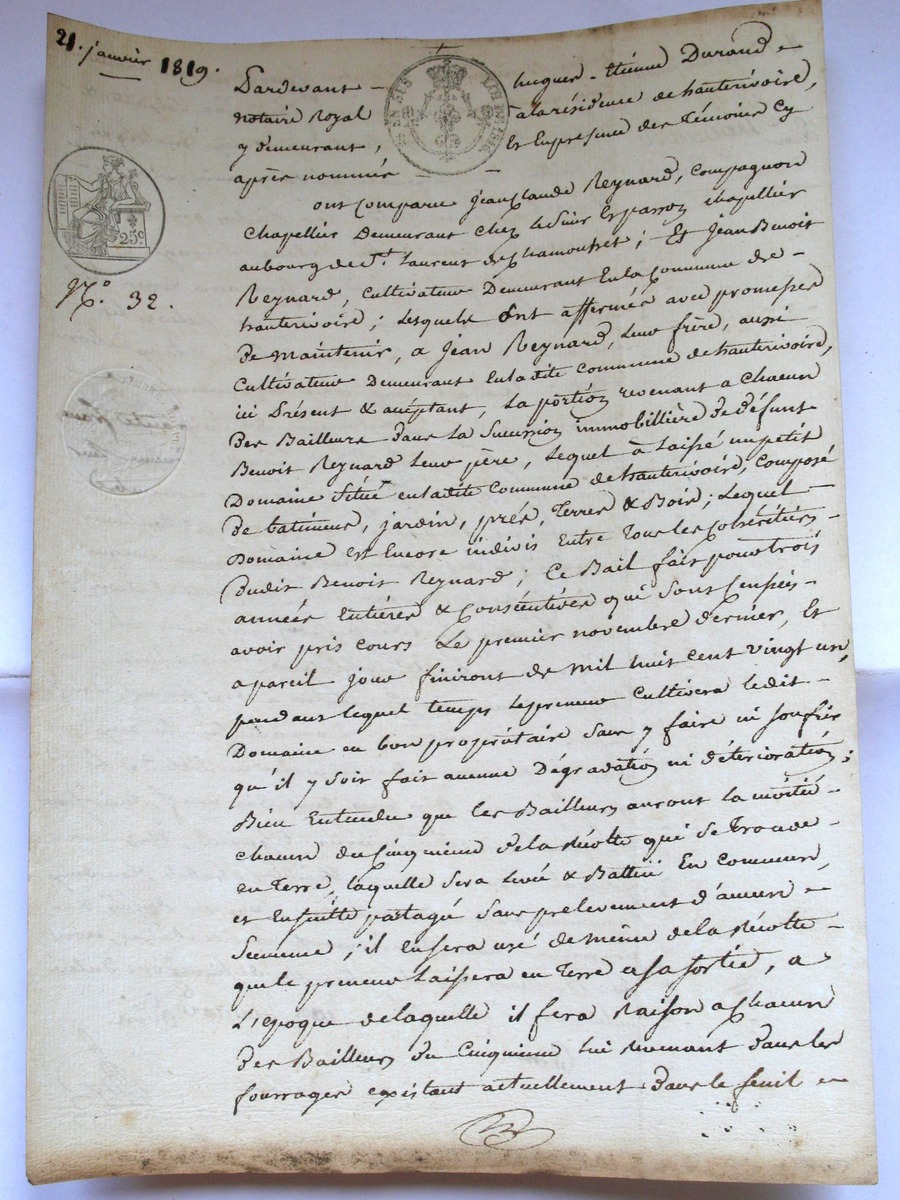 21. janvier 1819.
Pardevant - hugues - Etienne Durand
notaire Royal à la résidence de hauterivoire,
y demeurant, Et En presence des Témoins Cy
après nommés - -
25 c.
N.o 32.
ont Comparu Jean Claude Reynard, Compagnon
Chapellier Demeurant chez le Sieur chapellier
au bourg de St. Laurent de Chamousset; Et Jean Benoit
Reynard, Cultivateur Demeurant En la Commune de -
hauterivoire; Lesquels Ont affermés avec promesse
De Maintenir, a Jean Reynard, Leur frère, aussi
Cultivateur Demeurant En la dite Commune de hauterivoire,
ici Présent & acceptant, La portion revenant a Chacun
Des Bailleurs Dans la Sucession immobillière De défunt
Benoit Reynard Leur père, Lequel à Laissé un petit
Domaine Situé en la dite Commune de hauterivoire, Composé
De batiments, jardin, prés, Terres & Bois; Lequel -
Domaine est Encore indivis Entre Tous les Cohéritiers
Dudit Benoit Reynard; Ce Bail fait pour trois
années Entières & Consécutives qui Sont Censées -
avoir pris cours Le premier novembre dernier, Et
a pareil jour finiront de Mil huit cent vingt un,
pendant lequel temps le preneur Cultivera ledit -
Domaine en bon propriétaire Sans y faire ni Souffrir
qu'il y Soit fait aucune Dégradation ni déterioration;
Bien Entendu que les Bailleurs auront la moitié -
chacun du Cinquieme De la Récolte qui Se Trouve -
en Terre, laquelle Sera Levée & Battue En Commun,
et Ensuitte partagé Sans prelevement d'aucune
Semence; il en Sera usé de même de la Récolte -
que le preneur Laissera en Terre a Sa Sortie, a
L'epoque de laquelle il fera Raison a Chacun
Des Bailleurs Du Cinquieme lui revenant Dans les
fourrages existant actuellement Dans le fenil